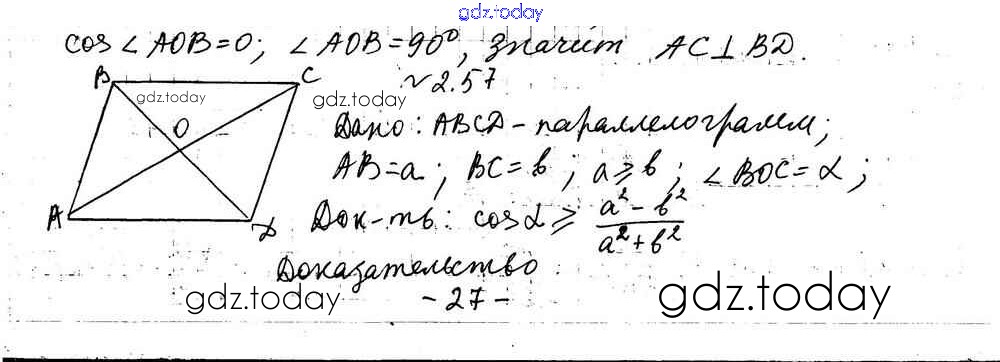 gdz.today
cos ∠ AOB = 0; ∠ AOB = 90°, значит AC ⊥ BD.
~ 2.57
B C
gdz.today gdz.today
O
Дано: ABCD - параллелограмм;
AB = a; BC = b; a ⩾ b; ∠ BOC = α;
A D
Док-ть: cos α ⩾ (a² - b²)/(a² + b²)
Доказательство
gdz.today - 27 - gdz.today